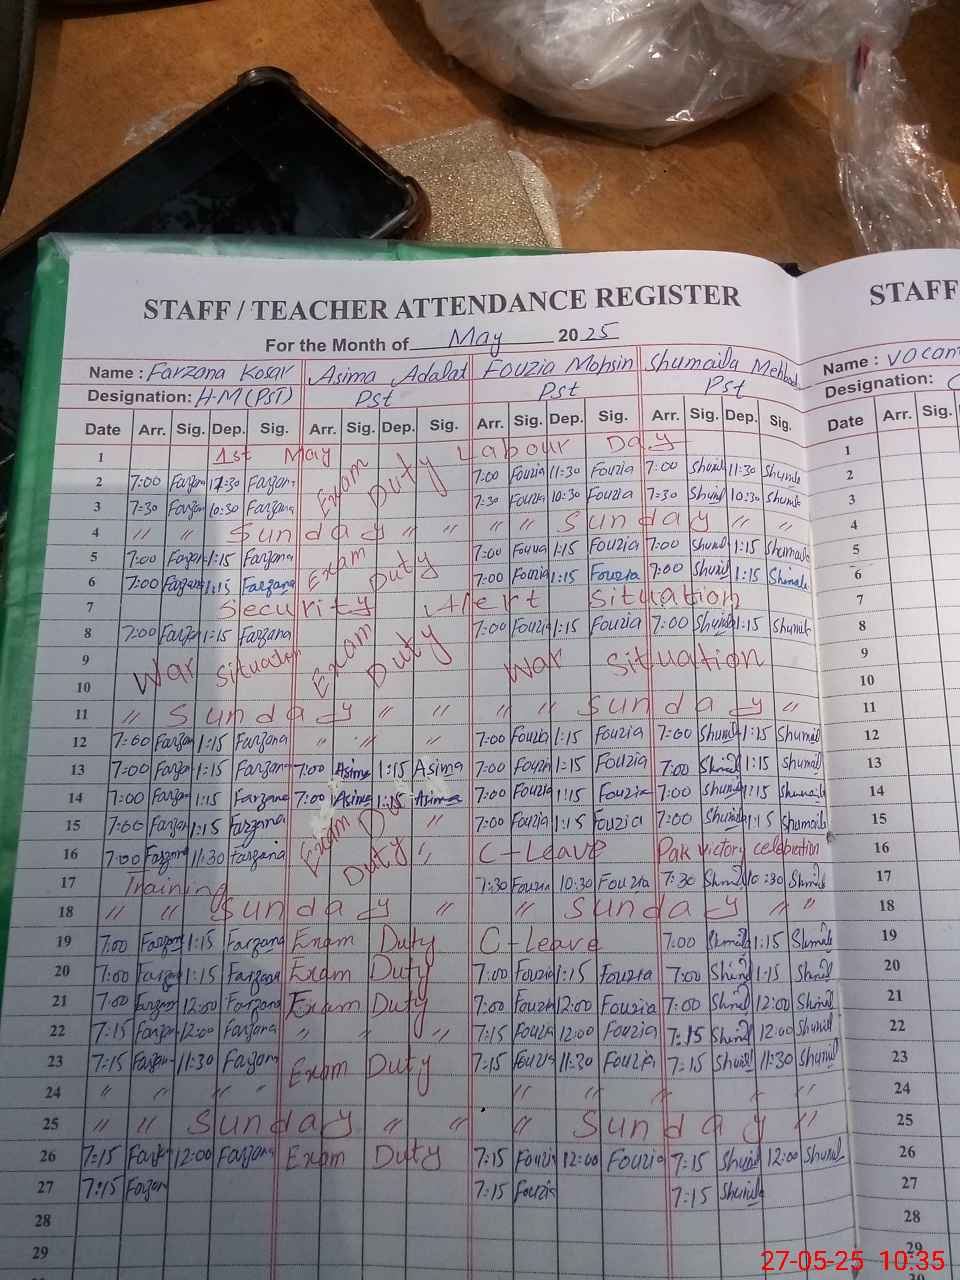 STAFF / TEACHER ATTENDANCE REGISTER STAFF
For the Month of May 2025
Name : Farzana Kosar Asima Adalat Fouzia Mohsin Shumaila Mehboob Name :
Designation: H-M (PST) Pst Pst Pst Designation:
Date Arr. Sig. Dep. Sig. Arr. Sig. Dep. Sig. Arr. Sig. Dep. Sig. Arr. Sig. Dep. Sig. Date Arr. Sig.
1 1st May Labour Day 1
2 7:00 Farzan 11:30 Farzan Exam Duty 7:00 Fouzia 11:30 Fouzia 7:00 Shumil 11:30 Shumile 2
3 7:30 Farzan 10:30 Farzana 7:30 Fouzia 10:30 Fouzia 7:30 Shumil 10:30 Shumila 3
4 " " Sunday " " " " Sunday " " 4
5 7:00 Farzan 1:15 Farzana Exam Duty 7:00 Fouzia 1:15 Fouzia 7:00 Shumil 1:15 Shumaila 5
6 7:00 Farzana 1:15 Farzana 7:00 Fouzia 1:15 Fouzia 7:00 Shumil 1:15 Shumale 6
7 Security Alert Situation 7
8 7:00 Farzan 1:15 Farzana Exam Duty 7:00 Fouzia 1:15 Fouzia 7:00 Shumila 1:15 Shumile 8
9 War Situation War Situation 9
10 10
11 " Sunday " " " " Sunday " 11
12 7:00 Farzan 1:15 Farzana " " " 7:00 Fouzia 1:15 Fouzia 7:00 Shumil 1:15 Shumail 12
13 7:00 Farzan 1:15 Farzana 7:00 Asima 1:15 Asima 7:00 Fouzia 1:15 Fouzia 7:00 Shumail 1:15 Shumail 13
14 7:00 Farzan 1:15 Farzana 7:00 Asima 1:15 Asima 7:00 Fouzia 1:15 Fouzia 7:00 Shumail 1:15 Shumaila 14
15 7:00 Farzan 1:15 Farzana Exam Duty " 7:00 Fouzia 1:15 Fouzia 7:00 Shumaila 1:15 Shumaila 15
16 7:00 Farzana 11:30 Farzana " C-Leave Pak victory celebration 16
17 Training 7:30 Fouzia 10:30 Fouzia 7:30 Shumail 10:30 Shumail 17
18 " " Sunday " " Sunday " " 18
19 7:00 Farzana 1:15 Farzana Exam Duty C-Leave 7:00 Shumail 1:15 Shumaila 19
20 7:00 Farzana 1:15 Farzana Exam Duty 7:00 Fouzia 1:15 Fouzia 7:00 Shumil 1:15 Shumil 20
21 7:00 Farzan 12:00 Farzana Exam Duty 7:00 Fouzia 12:00 Fouzia 7:00 Shumil 12:00 Shumil 21
22 7:15 Farzan 12:00 Farzana " " " 7:15 Fouzia 12:00 Fouzia 7:15 Shumil 12:00 Shumil 22
23 7:15 Farzan 11:30 Fagana Exam Duty 7:15 Fouzia 11:30 Fouzia 7:15 Shumail 11:30 Shumil 23
24 " " " " " " " " " 24
25 " " Sunday " " " Sunday " 25
26 7:15 Farzan 12:00 Farzana Exam Duty 7:15 Fouzia 12:00 Fouzia 7:15 Shumil 12:00 Shumil 26
27 7:15 Farzan 7:15 Fouzia 7:15 Shumila 27
28 28
29 29
27-05-25 10:35